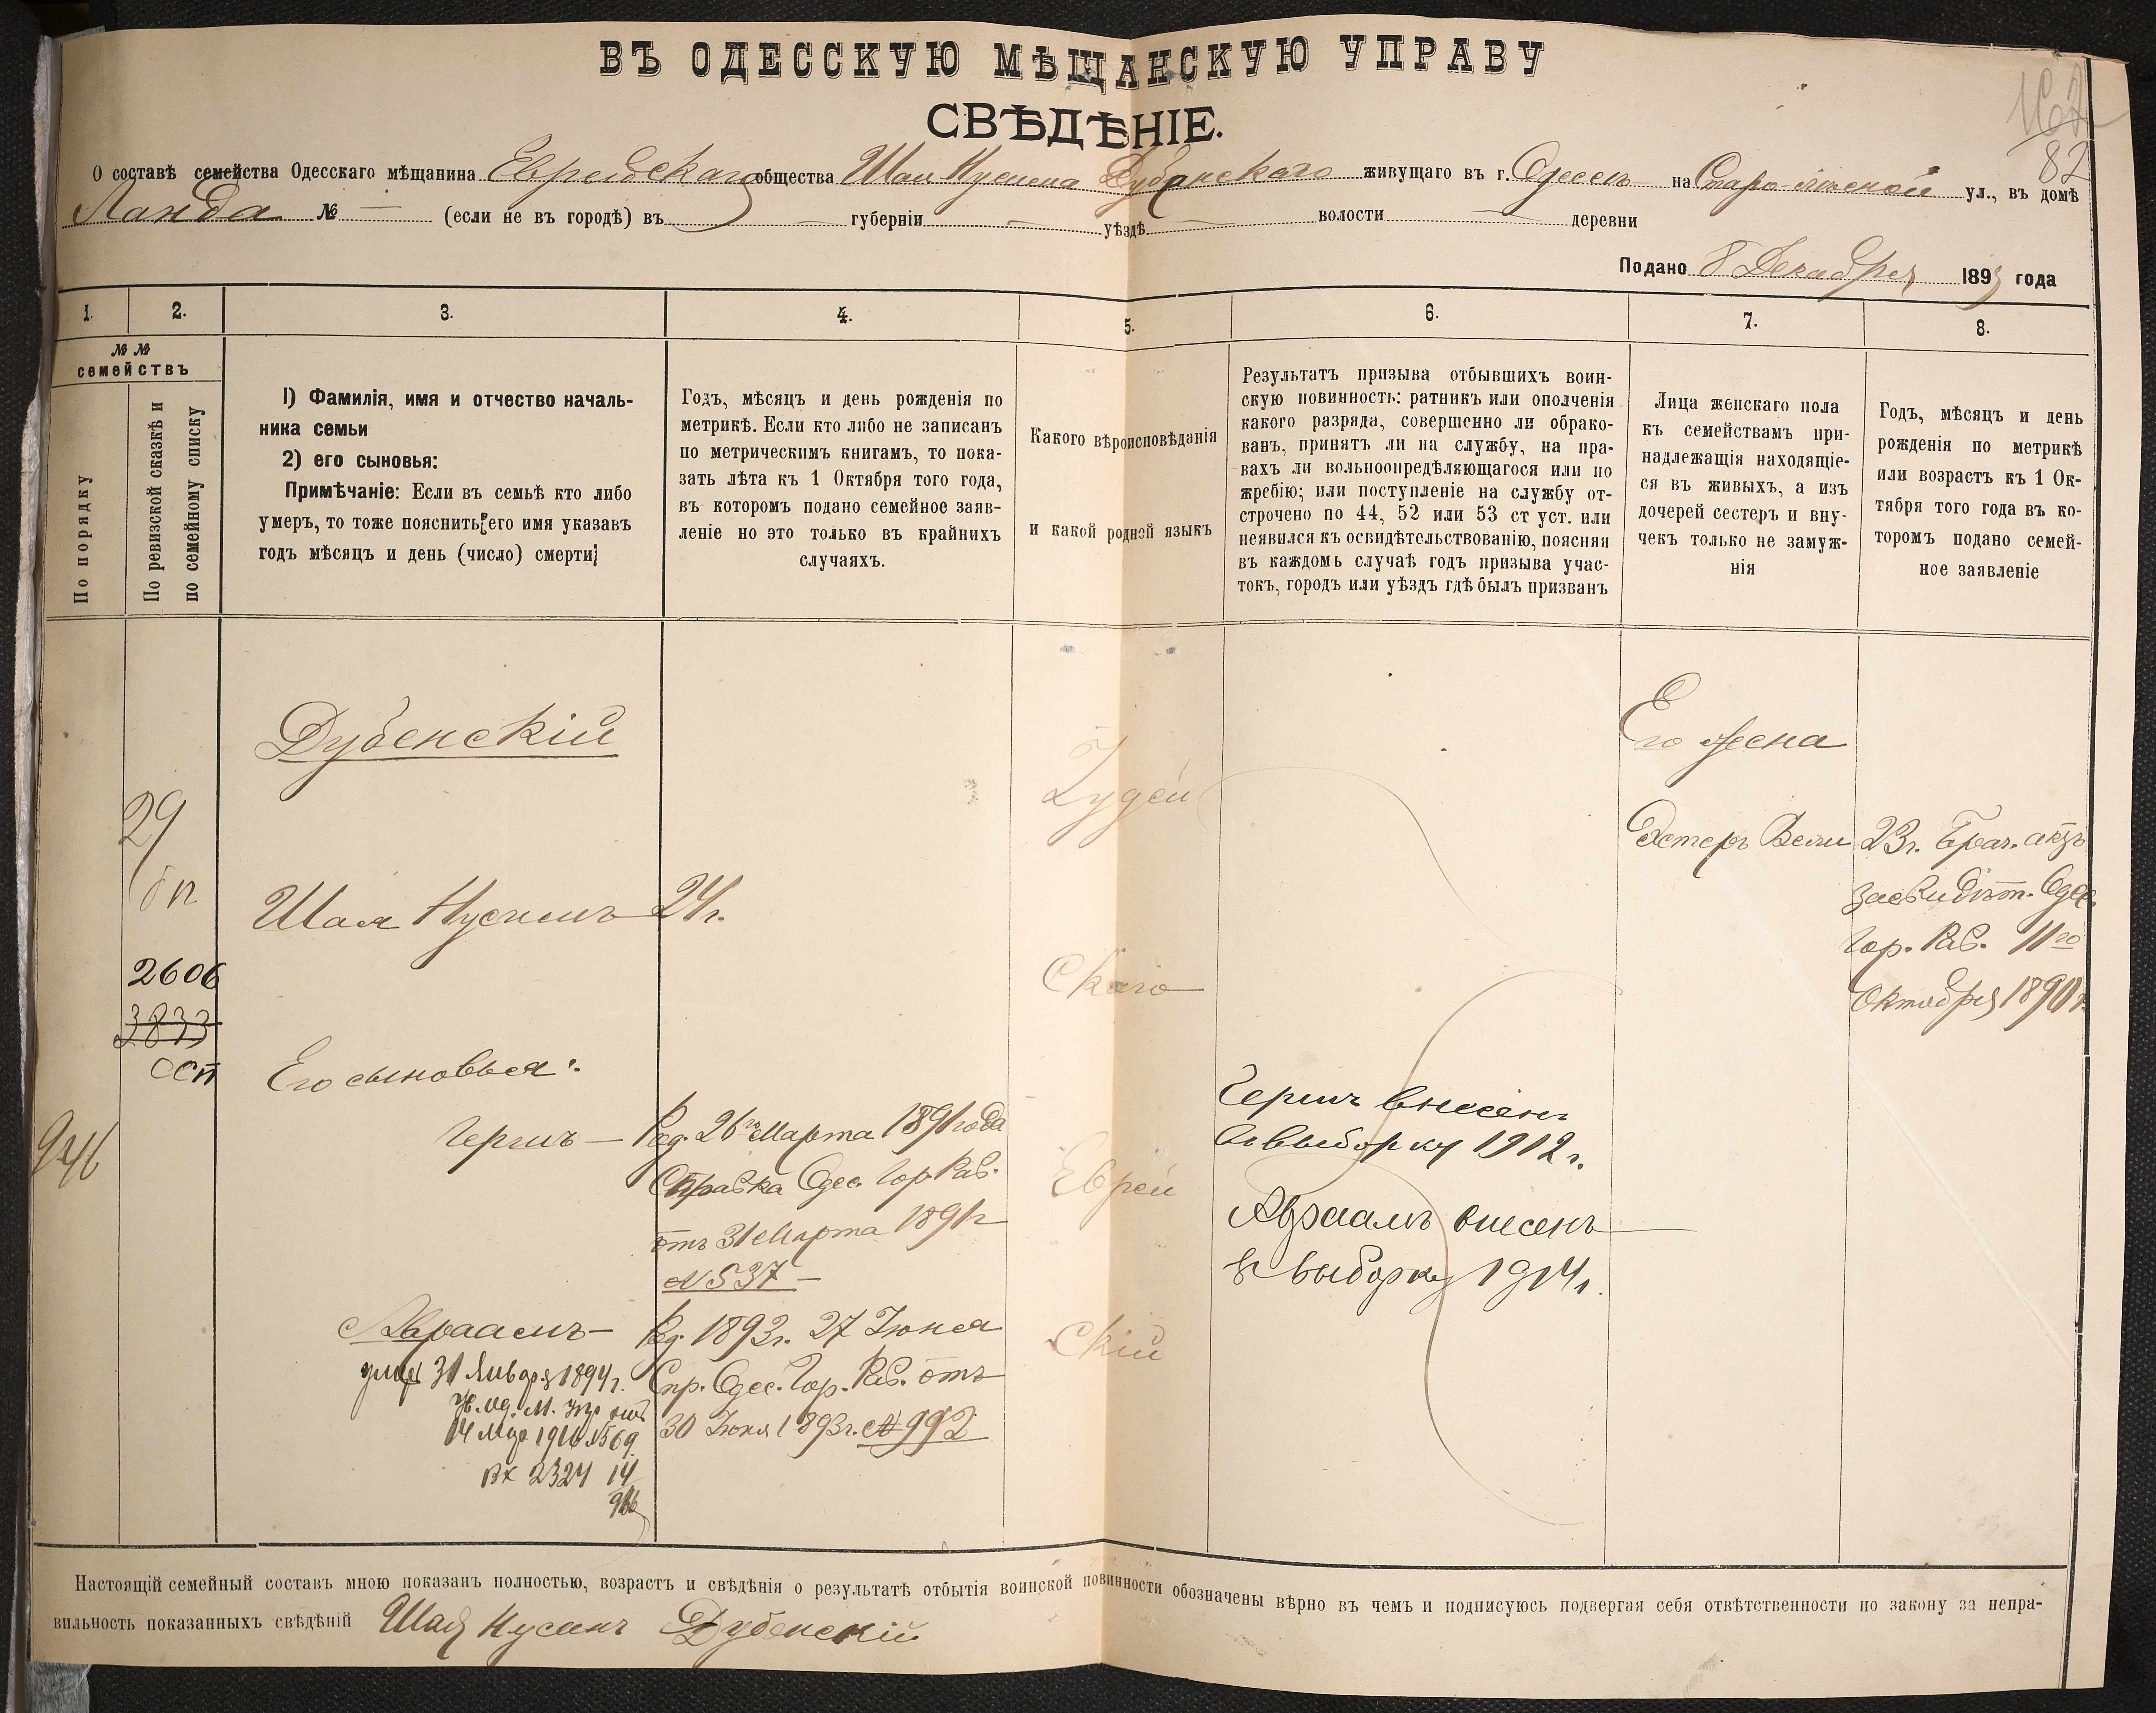 ВЪ ОДЕССКУЮ МѢЩАНСКУЮ УПРАВУ
СВѢДѢНІЕ.
82
О составѣ семейства Одесскаго мѣщанина Еврейскаго общества Шаи Нусина Дубенскаго живущаго въ г. Одессѣ на ул., въ домѣ
Ланда № — (если не въ городѣ) въ губерніи — уѣздѣ — волости — деревни
Подано 8 Декабря 1893 года
1. 2. 3. 4. 5. 6. 7. 8.
№ №
семействъ
По порядку
По ревизской сказкѣ и
по семейному списку
1) Фамилія, имя и отчество началь-
ника семьи
2) его сыновья:
Примѣчаніе: Если въ семьѣ кто либо
умеръ, то тоже пояснить его имя указавъ
годъ мѣсяцъ и день (число) смерти;
Годъ, мѣсяцъ и день рожденія по
метрикѣ. Если кто либо не записанъ
по метрическимъ книгамъ, то пока-
зать лѣта къ 1 Октября того года,
въ которомъ подано семейное заяв-
леніе но это только въ крайнихъ
случаяхъ.
Какого вѣроисповѣданія
и какой родной языкъ
Результатъ призыва отбывшихъ воин-
скую повинность: ратникъ или ополченія
какого разряда, совершенно ли обрако-
ванъ, принятъ ли на службу, на пра-
вахъ ли вольноопредѣляющагося или по
жребію; или поступленіе на службу от-
строчено по 44, 52 или 53 ст уст. или
неявился къ освидѣтельствованію, поясняя
въ каждомъ случаѣ годъ призыва учас-
токъ, городъ или уѣздъ гдѣ былъ призванъ
Лица женскаго пола
къ семействамъ при-
надлежащія находящіе-
ся въ живыхъ, а изъ
дочерей сестеръ и вну-
чекъ только не замуж-
нія
Годъ, мѣсяцъ и день
рожденія по метрикѣ
или возрастъ къ 1 Ок-
тября того года въ ко-
торомъ подано семей-
ное заявленіе
Дубенскій
29
2606
3833
946
Шая Нусинъ 24 г.
Его сыновья:
Гершъ — Род. 26го Марта 1891 года
Справка Одес. Гор. Рав.
отъ 31 Марта 1891 г
№ 537 —
Авраамъ — Род. 1893 г. 27 Іюня
Спр. Одес. Гор. Рав. отъ
30 Іюня 1893 г. № 992
умер 31 Января 1894 г.
14 Мар 1916 № 569
вх 2324 14
916
Іудей
Скаго
Еврей
скій
Гершъ внесенъ
въ выборку 1912 г.
Авраамъ внесенъ
въ выборку 1914 г.
Его жена
Эстеръ Бейла
23 г. Брач. актъ
засвидѣт. Одес.
Гор. Рав. 11го
Октября 1890 г.
Настоящій семейный составъ мною показанъ полностью, возрастъ и свѣдѣнія о результатѣ отбытія воинской повинности обозначены вѣрно въ чемъ и подписуюсь подвергая себя отвѣтственности по закону за непра-
вильность показанныхъ свѣдѣній Шая Нусинъ Дубенскій